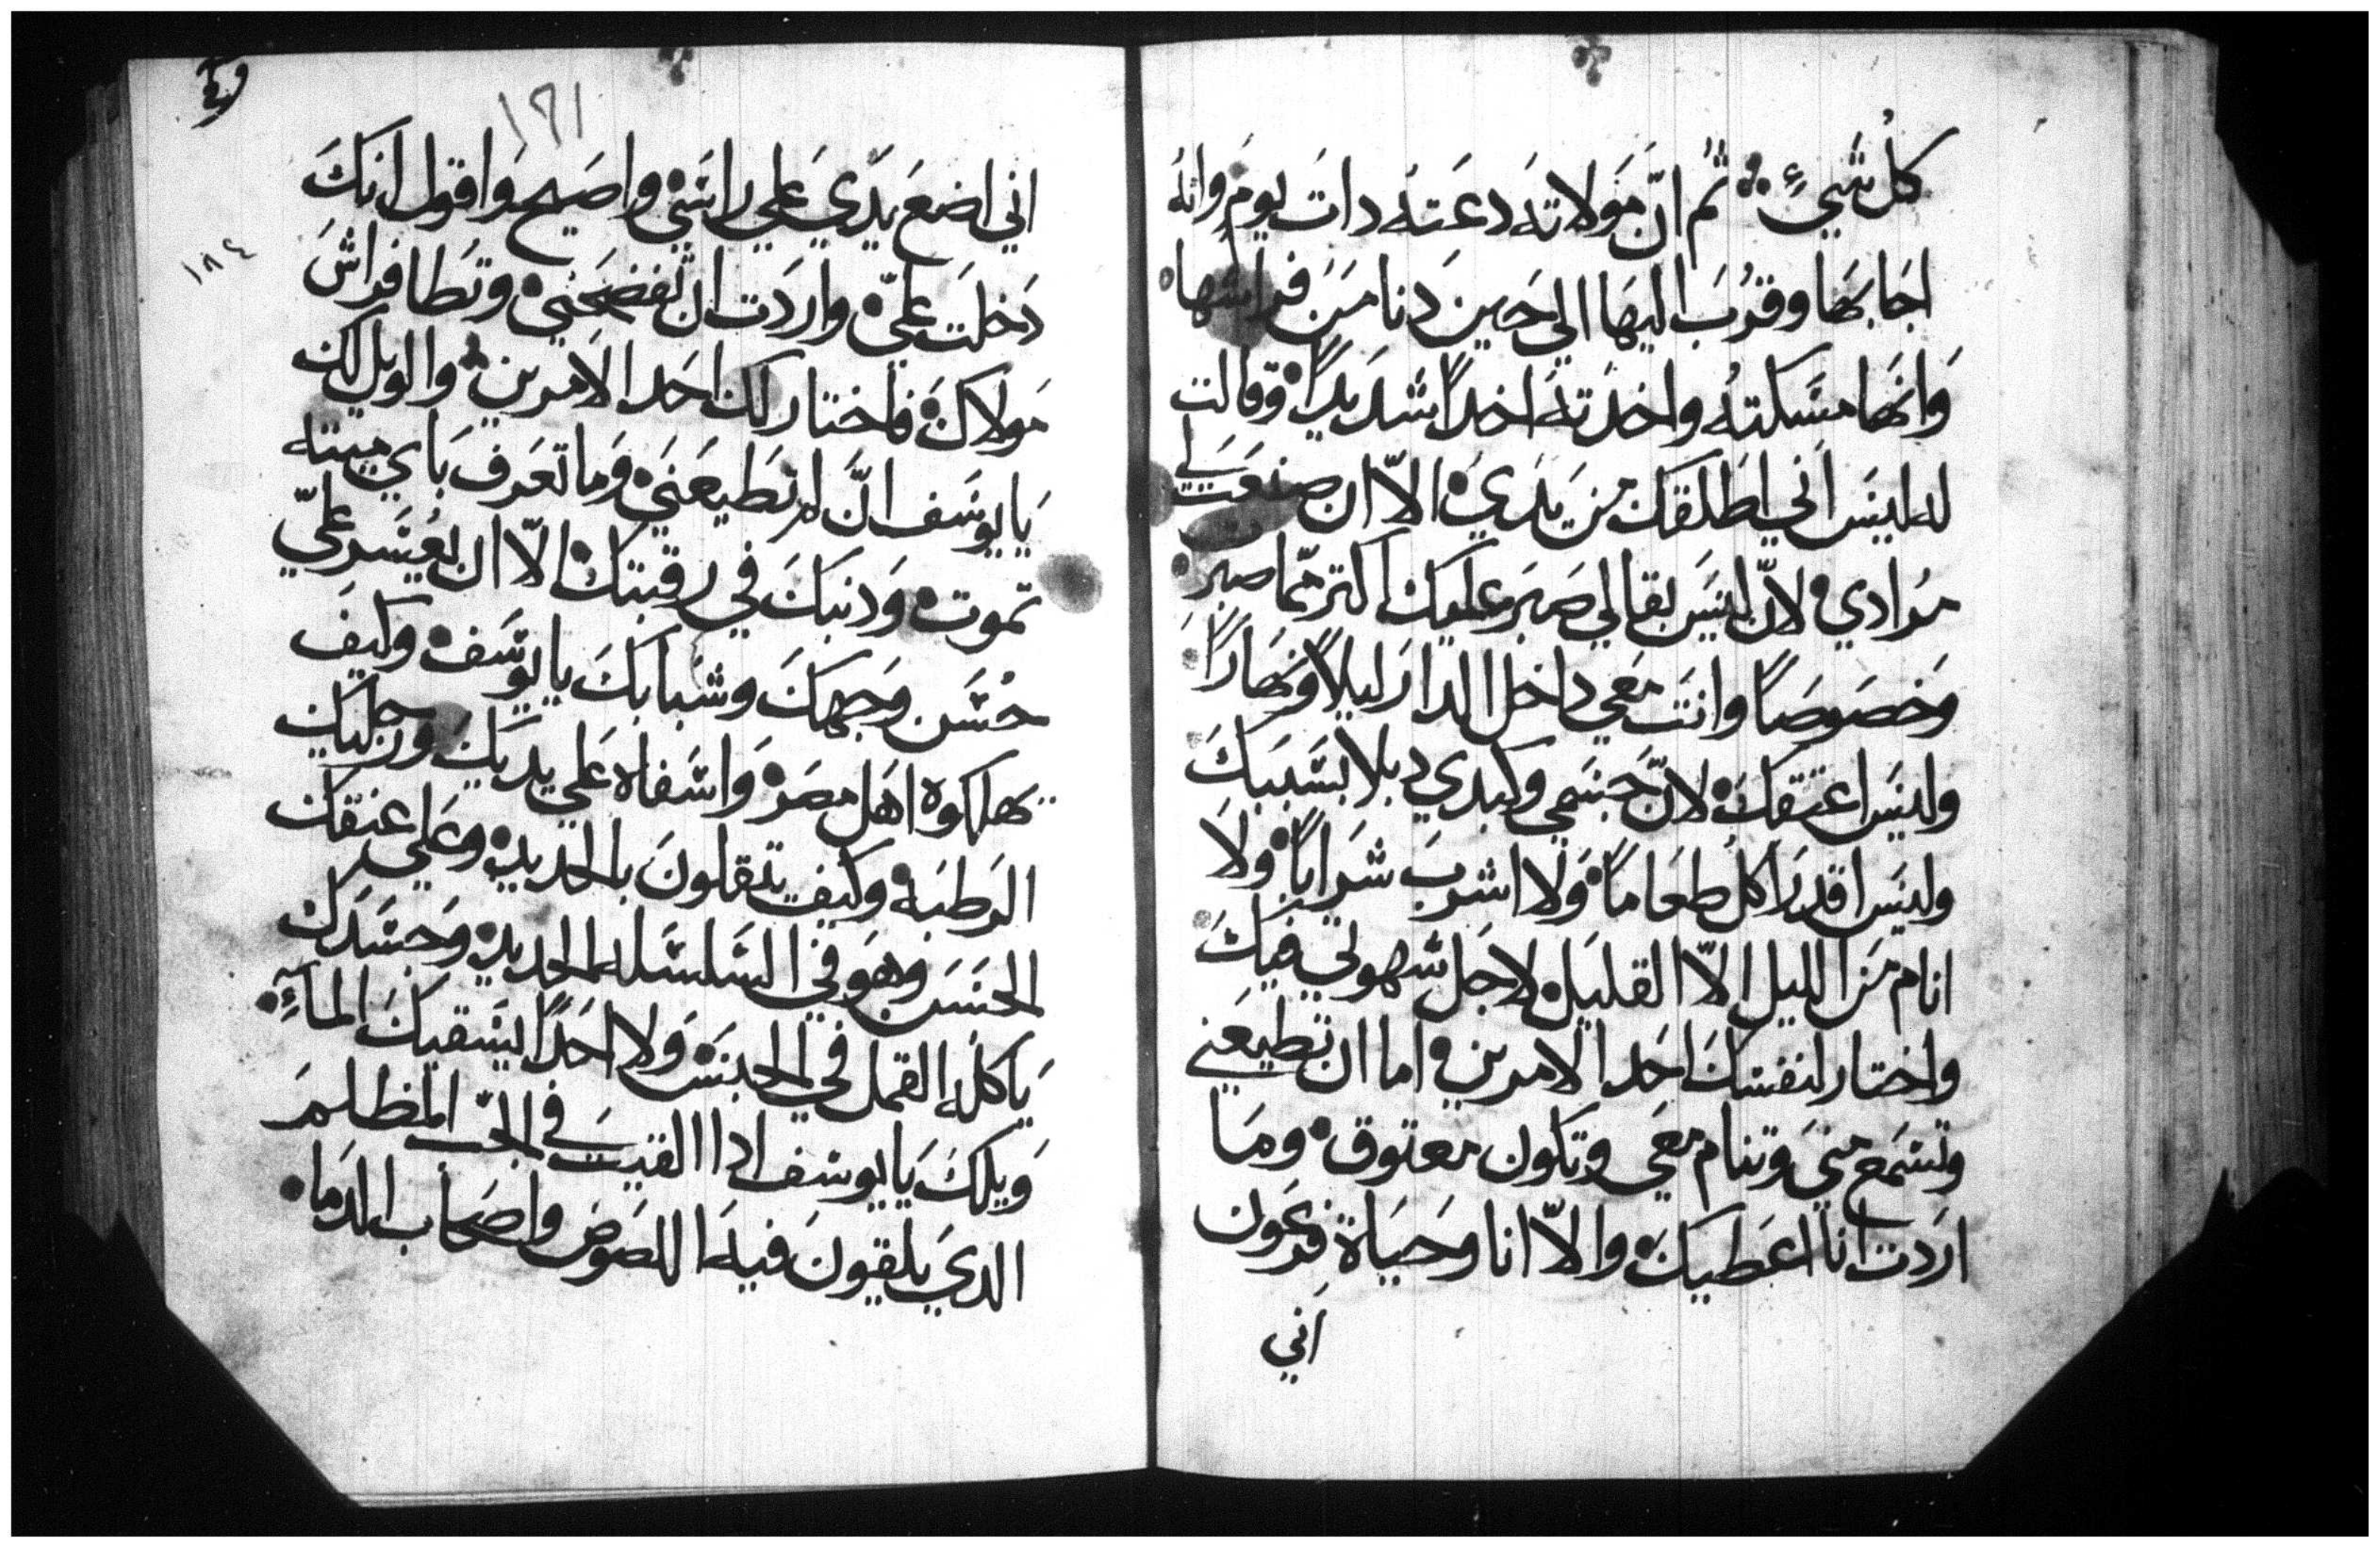 كلُ شيءٍ ثُم انّ مَولاته دعَته دات يومٍ وانهُ
اجَابهَا وقرُبَ اليهَا الي حَين دنا مَن فراشها
وَانهَا مسَكتهُ واخدَته اخداً شدَيداً وقالت
لهُ ليسَ اني اطَلقكَ من يَديَ الاّ ان صنعَت لي
مُرادي لانّ ليسَ بقا لي صَبرَ عليكَ اكتر ممّا صبر
وَخصَوصَاً وانتَ معَي داخل الدارَ ليلاً ونهَاراً
وليسَ اعتقكَ لانّ جَسَمي وكبدي دبلا بسَببَكَ
وليسَ اقدرَ اكل طعَاماً ولا اشربَ شرَاباً ولا
انام مَن الليل الاّ القليَل لاجَل شهوتي فيكَ
واختار لنفسَكَ احَد الامرين اما ان تطيعَني
وتسَمع منيَ وتنام معَي وتكون معتوق ومَا
ارَدت انا اعَطيكَ والاّ انا وحَيَاة فرعَون
اَني
١٦١
١٨٤
اني اضعَ يدَي عَلي راسَي واصَيح وَاقول انكَ
دَخلتَ عليّ وارَدت ان تفضحَني وتَطا فراشَ
مَولاكَ فاختار لكَ احَد الامرين والويل لكَ
يَا يوسَف انَّ لم تطَيعَنيَ وَما تعَرف بَاي ميته
تموت وَدنبكَ في رقبتكَ الاّ ان يعُسَر عليّ
حُسَن وَجهكَ وشبابكَ يا يوسَف وكيف
يهلكوة اهَل مصَر وَاسَفاه عَلي يديكَ ورجليكَ
الرَطبَه وكيف يتقلونَ بالحديد وعَلي عنقكَ
الحَسَن وهوَ في السَلسَله الحديد وَجسَدَكَ
يَاكلهُ القمل في الحبسَ وَلا احَداً يسَقيكَ الماءِ
وَيلكَ يَا يوسف ادا القيتَ في الجبّ المظلمَ
الديَ يلقونَ فيهَ اللصَوصَ واصَحَاب الدمَا